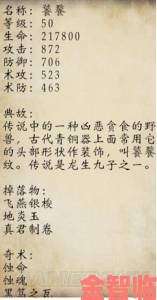 名称: 饕餮
等级: 50
生命: 217800
攻击: 872
防御: 706
术攻: 523
术防: 463
典故:
传说中的一种凶恶贪食的野
兽，古代青铜器上面常用它
的头部形状作装饰，叫做饕餮
纹。传说是龙生九子之一。
掉落物:
飞燕银梭
地炎玉
真君制卷
奇术:
蚀命
蚀魂
金智临